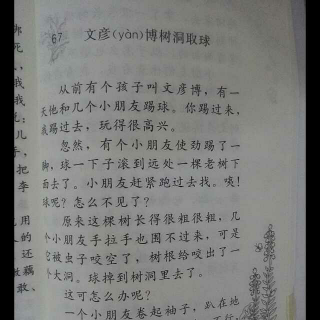 67 文彦(yàn)博树洞取球
从前有个孩子叫文彦博,有一
天他和几个小朋友踢球。你踢过来,
我踢过去,玩得很高兴。
忽然,有个小朋友使劲踢了一
脚,球一下子滚到远处一棵老树下
面去了。小朋友赶紧跑过去找。咦!
球呢?怎么不见了?
原来这棵树长得很粗很粗,几
个小朋友手拉手也围不过来,可是
它被虫子咬空了,树根给咬出了一
个大洞。球掉到树洞里去了。
这可怎么办呢?
一个小朋友卷起袖子,趴在地